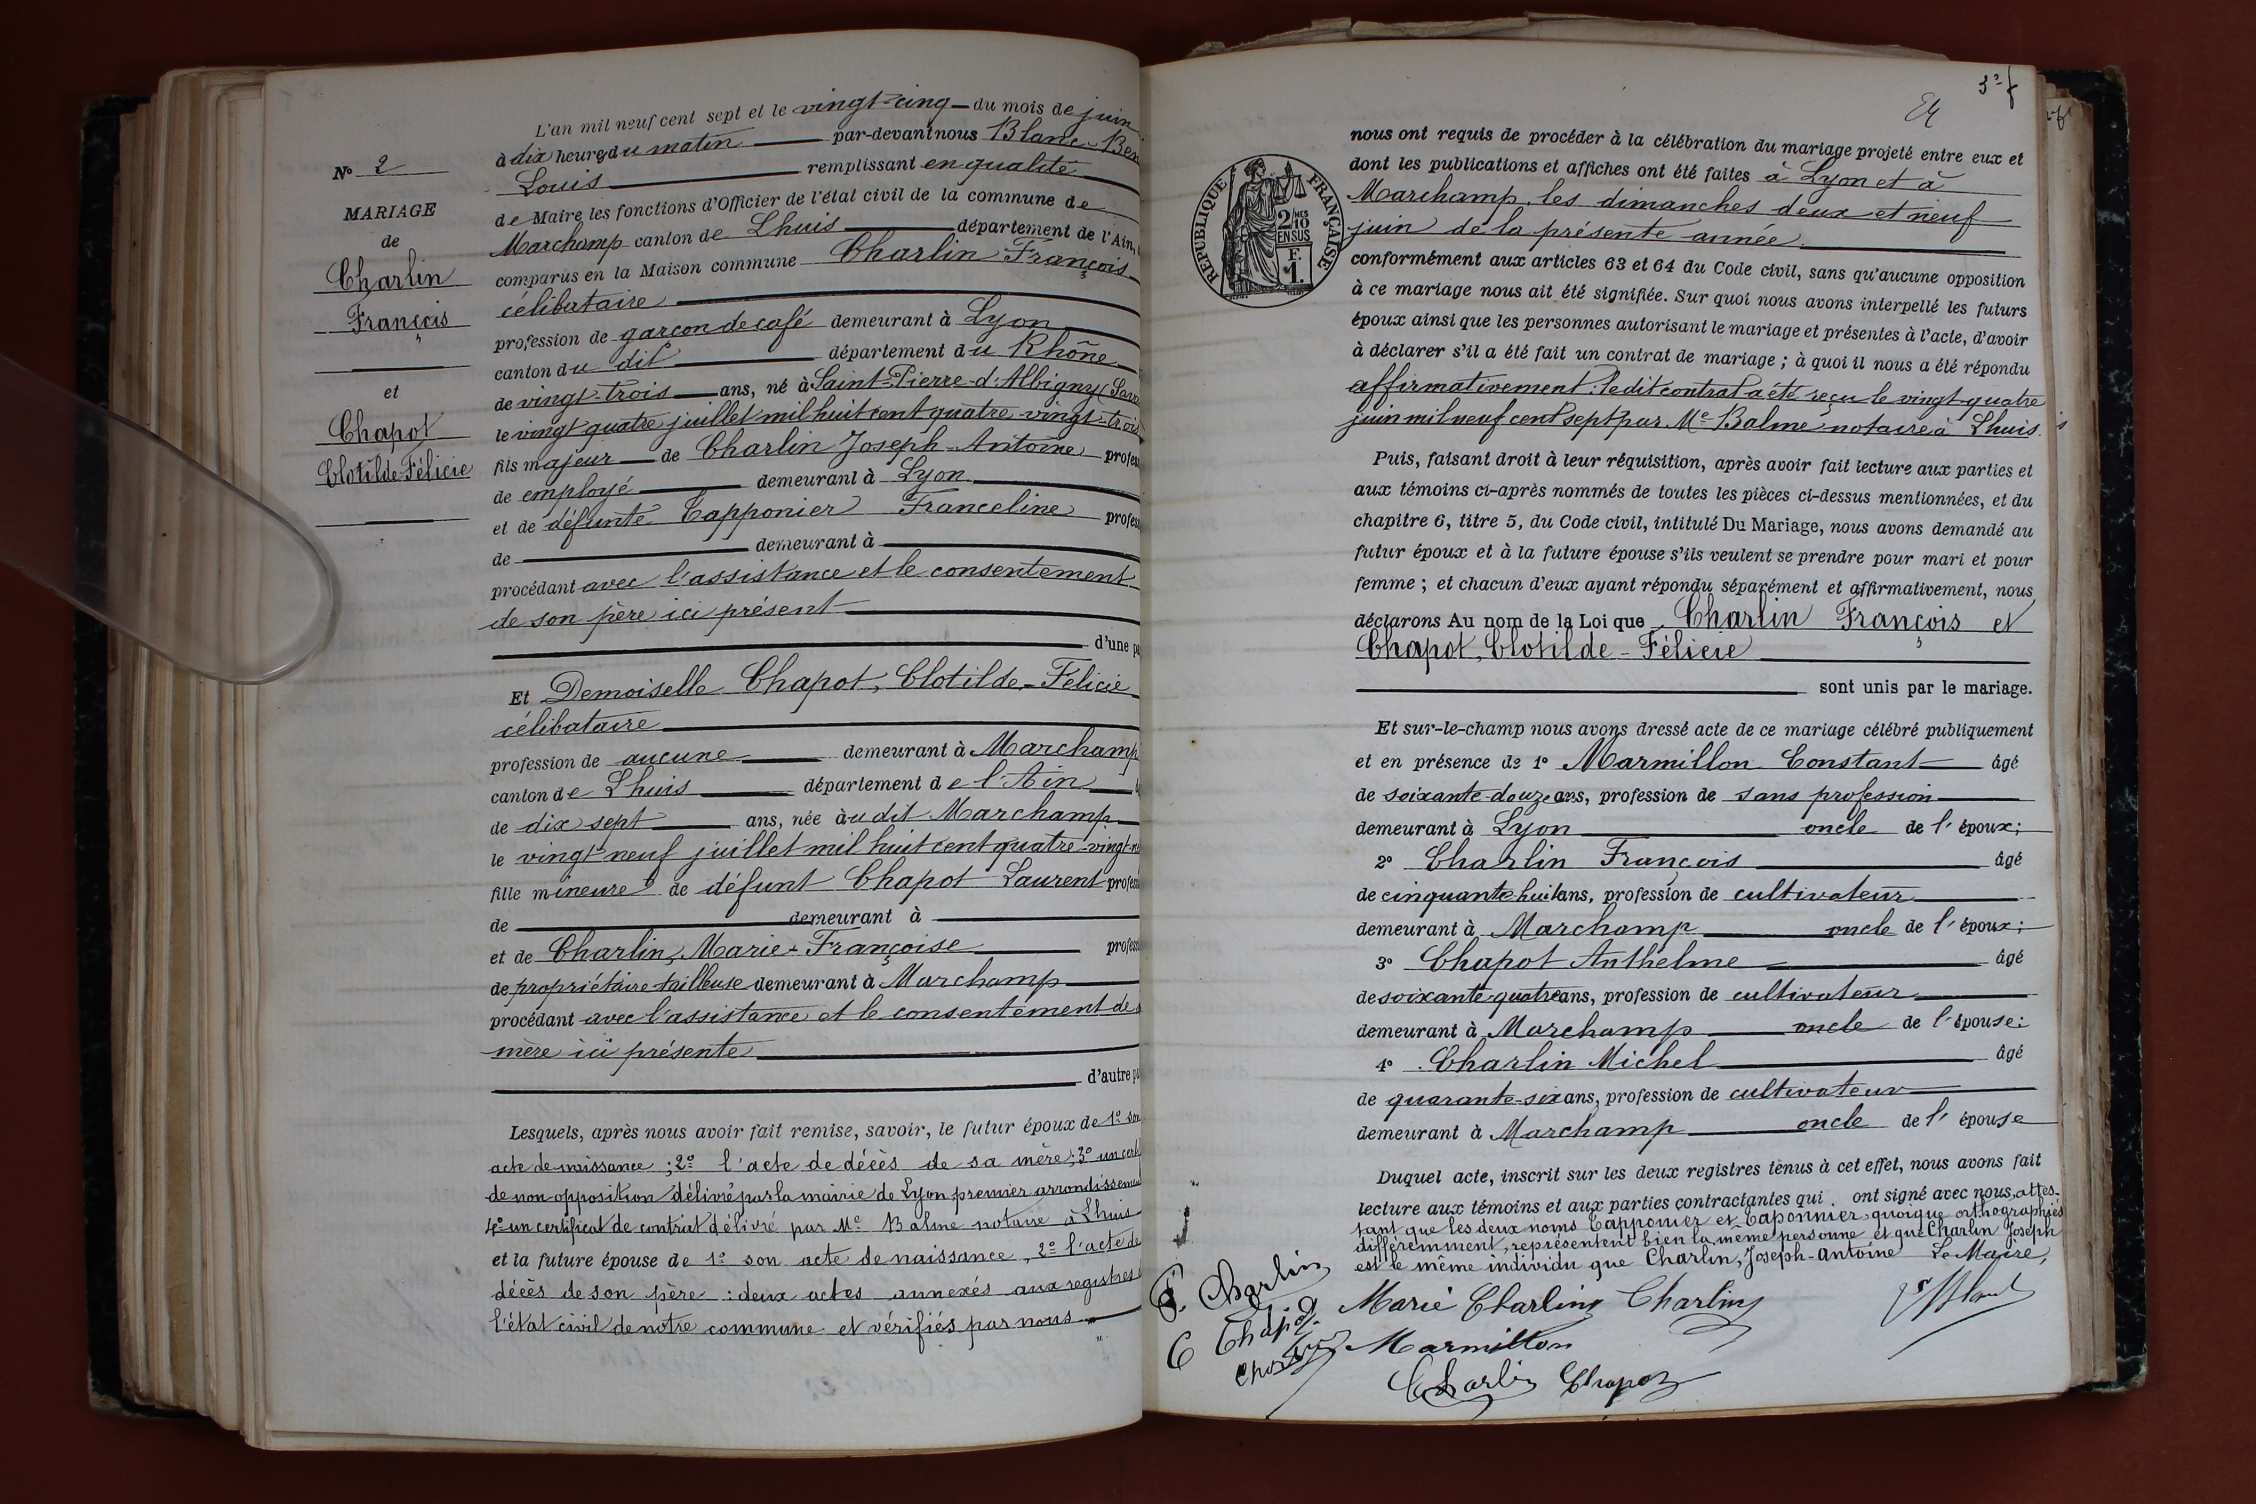 N° 2
MARIAGE
de
Charlin
François
et
Chapot
Clotilde-Félicie
L'an mil neuf cent sept et le vingt-cinq du mois de juin
à dix heures du matin par-devant nous Blanc
Louis remplissant en qualité
de Maire les fonctions d'Officier de l'état civil de la commune de
Marchamp canton de Lhuis département de l'Ain,
comparus en la Maison commune Charlin François
célibataire
profession de garçon de café demeurant à Lyon
canton du dit département du Rhône
de vingt-trois ans, né à Saint-Pierre-d'Albigny
le vingt quatre juillet mil huit cent quatre-vingt-trois
fils majeur de Charlin Joseph-Antoine
de employé demeurant à Lyon
et de défunte Tapponier Franceline
de demeurant à
procédant avec l'assistance et le consentement
de son père ici présent
d'une
Et Demoiselle Chapot, Clotilde-Félicie
célibataire
profession de aucune demeurant à Marchamp
canton de Lhuis département de l'Ain
de dix sept ans, née audit Marchamp
le vingt neuf juillet mil huit cent quatre-vingt-
fille mineure de défunt Chapot Laurent
de demeurant à
et de Charlin, Marie-Françoise
de propriétaire tailleuse demeurant à Marchamp
procédant avec l'assistance et le consentement de
mère ici présente
d'autre
Lesquels, après nous avoir fait remise, savoir, le futur époux de 1° son
acte de naissance ; 2° l'acte de décès de sa mère ; 3° un
de non-opposition délivré par la mairie de Lyon premier arrondissement
4° un certificat de contrat délivré par Me Balme notaire à Lhuis
et la future épouse de 1° son acte de naissance, 2° l'acte de
décès de son père : deux actes annexés aux registres
l'état civil de notre commune et vérifiés par nous
3e f
RÉPUBLIQUE FRANÇAISE
2/10MES
EN SUS
F.
1
nous ont requis de procéder à la célébration du mariage projeté entre eux et
dont les publications et affiches ont été faites à Lyon et à
Marchamp, les dimanches deux et neuf
juin de la présente année
conformément aux articles 63 et 64 du Code civil, sans qu'aucune opposition
à ce mariage nous ait été signifiée. Sur quoi nous avons interpellé les futurs
époux ainsi que les personnes autorisant le mariage et présentes à l'acte, d'avoir
à déclarer s'il a été fait un contrat de mariage ; à quoi il nous a été répondu
affirmativement : ledit contrat a été reçu le vingt quatre
juin mil neuf cent sept par Me Balme notaire à Lhuis.
Puis, faisant droit à leur réquisition, après avoir fait lecture aux parties et
aux témoins ci-après nommés de toutes les pièces ci-dessus mentionnées, et du
chapitre 6, titre 5, du Code civil, intitulé Du Mariage, nous avons demandé au
futur époux et à la future épouse s'ils veulent se prendre pour mari et pour
femme ; et chacun d'eux ayant répondu séparément et affirmativement, nous
déclarons Au nom de la Loi que Charlin François et
Chapot, Clotilde-Félicie
sont unis par le mariage.
Et sur-le-champ nous avons dressé acte de ce mariage célébré publiquement
et en présence de 1° Marmillon Constant âgé
de soixante-douze ans, profession de sans profession
demeurant à Lyon oncle de l'époux ;
2° Charlin François âgé
de cinquante-huit ans, profession de cultivateur
demeurant à Marchamp oncle de l'époux ;
3° Chapot Anthelme âgé
de soixante-quatre ans, profession de cultivateur
demeurant à Marchamp oncle de l'épouse ;
4° Charlin Michel âgé
de quarante-six ans, profession de cultivateur
demeurant à Marchamp oncle de l'épouse
Duquel acte, inscrit sur les deux registres tenus à cet effet, nous avons fait
lecture aux témoins et aux parties contractantes qui ont signé avec nous, attes-
tant que les deux noms Tapponier et Taponnier quoique orthographiés
différemment, représentent bien la même personne et que Charlin Joseph
est le même individu que Charlin, Joseph-Antoine Le Maire,
F. Charlin
C Chapot
Marie Charlin Charlin
Marmillon
Charlin Chapot